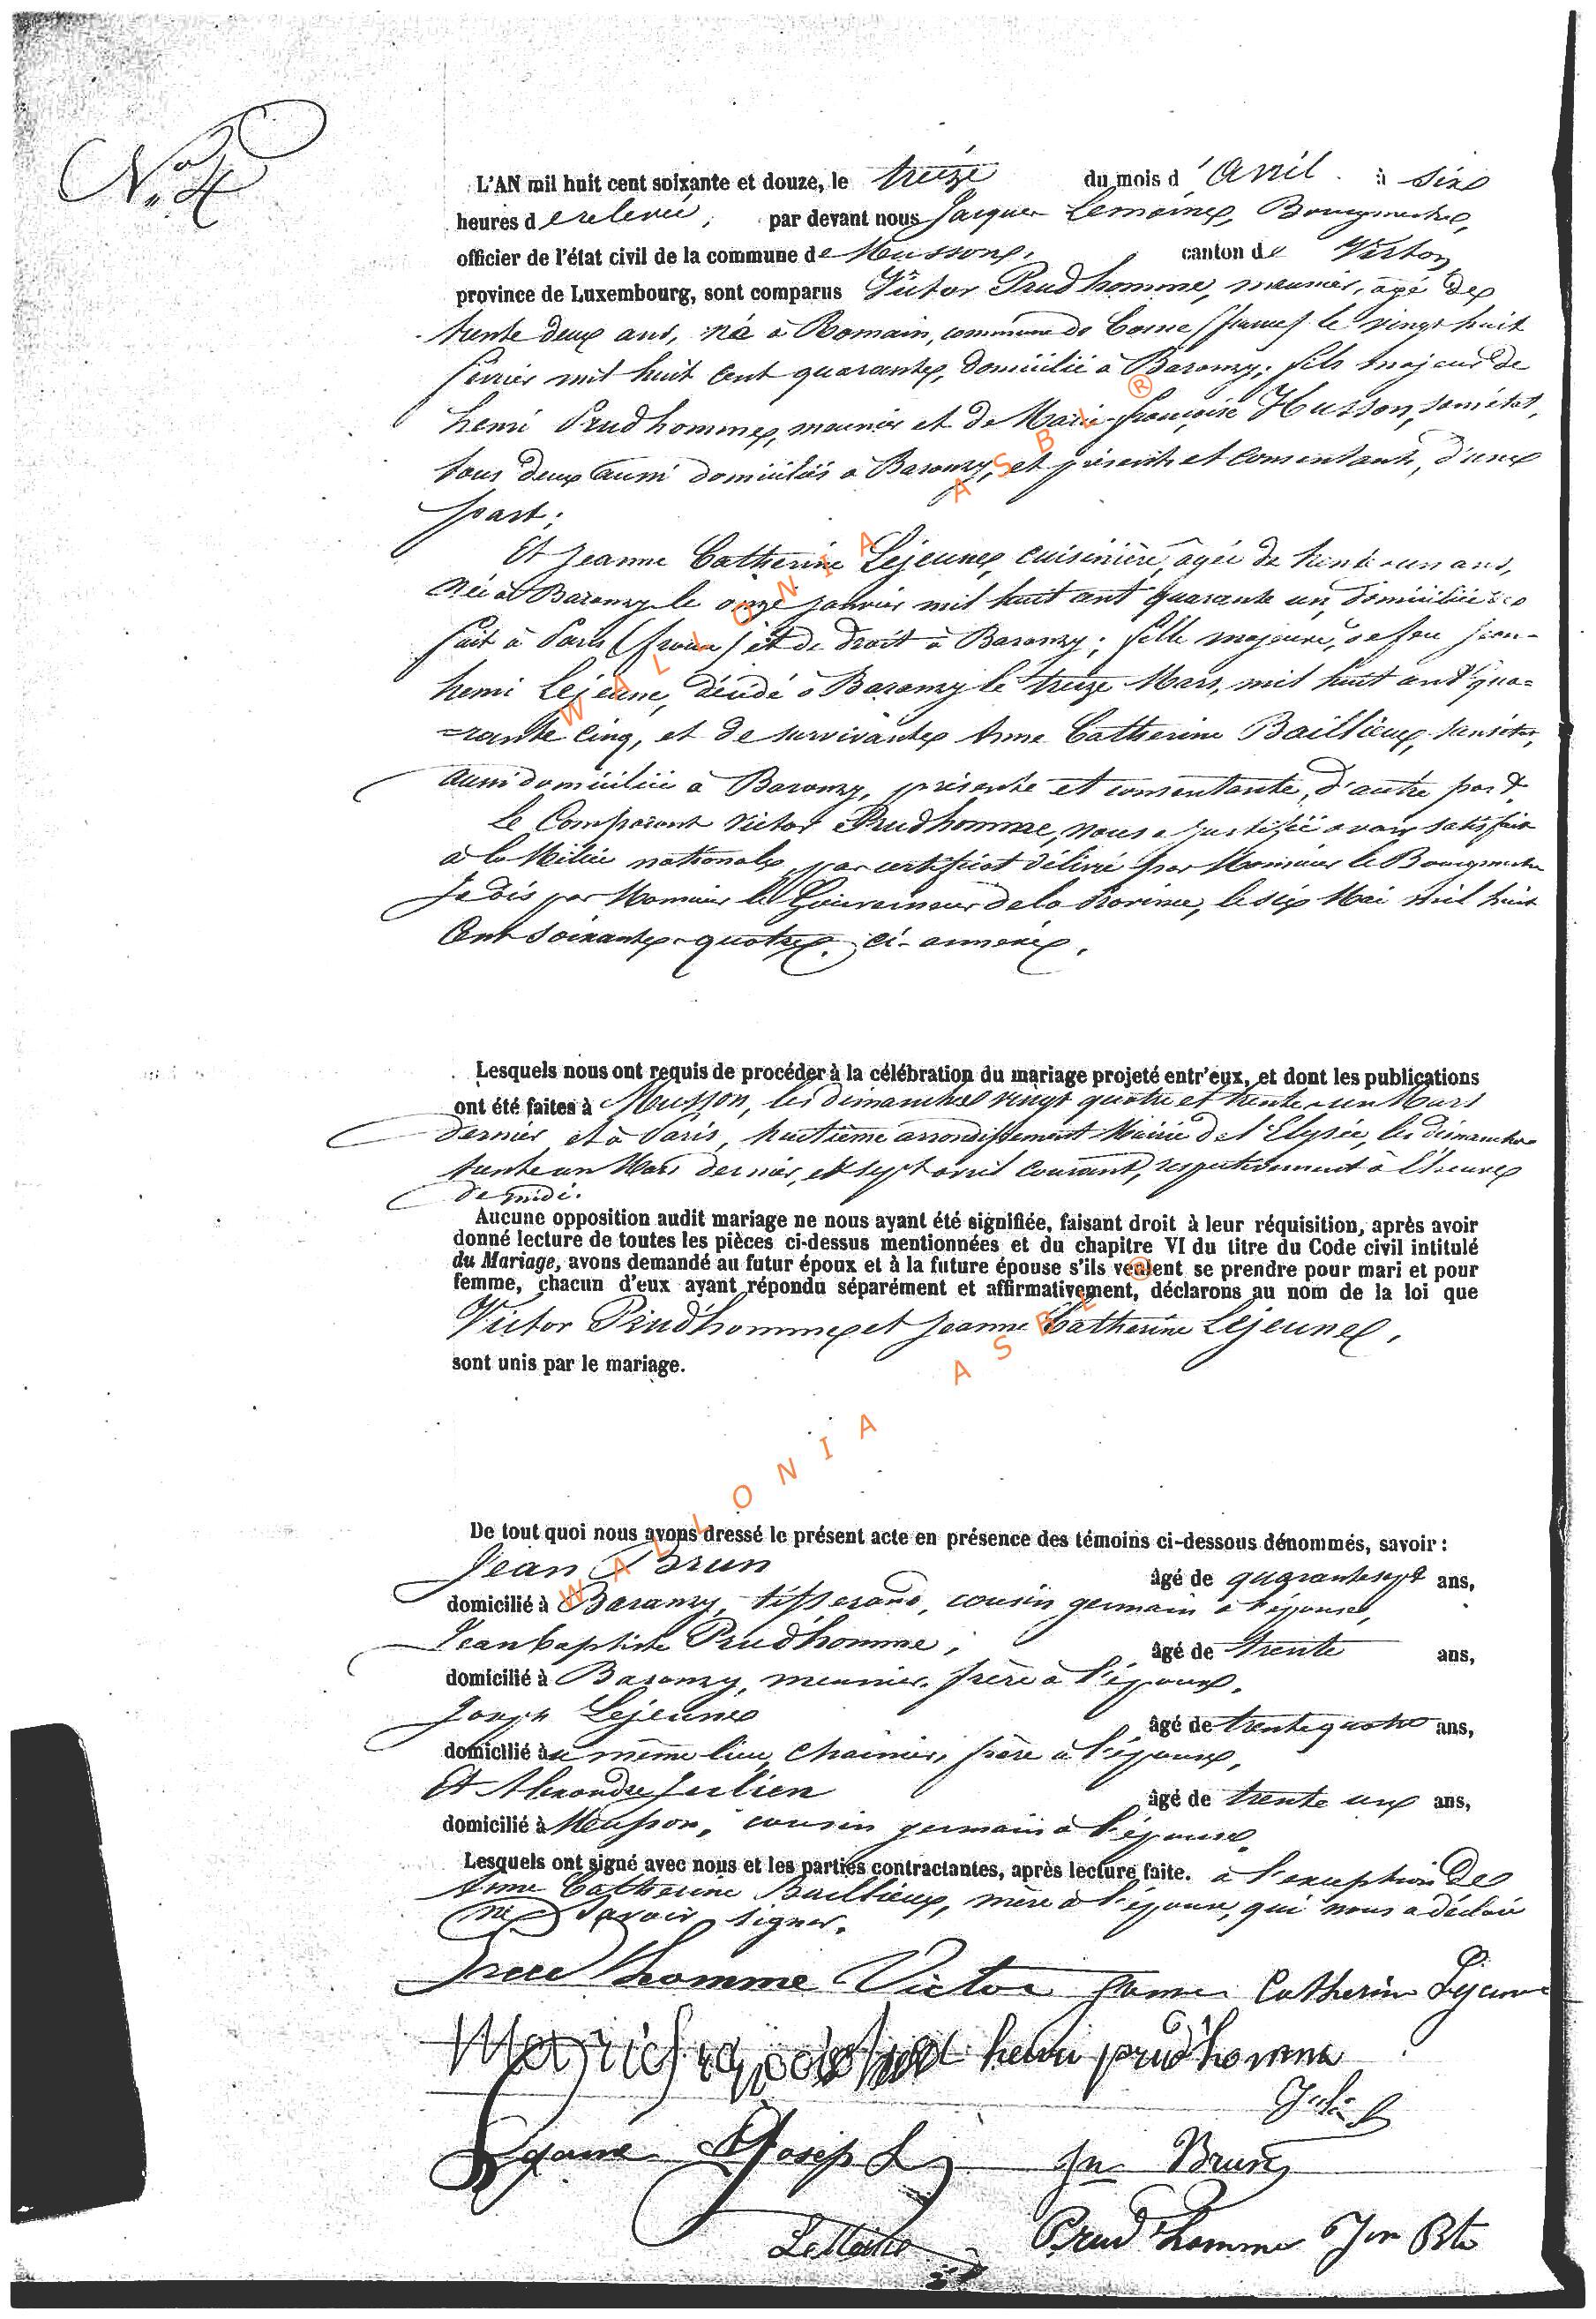 N° 4
L'AN mil huit cent soixante et douze, le treize du mois d'avril à six
heures de relevée, par devant nous Jacques Lemoine, Bourgmestre,
officier de l'état civil de la commune de Musson, canton de Virton,
province de Luxembourg, sont comparus Victor Prudhomme, meunier, âgé de
trente deux ans, né à Romain, commune de Cosne (france) le vingt huit
février mil huit cent quarante, domicilié à Baranzy, fils majeur de
henri Prudhomme, meunier et de Marie françoise Husson, sans état,
tous deux aussi domiciliés à Baranzy, et présents et consentants, d'une
part;
Et Jeanne Catherine Lejeune, cuisinière, âgée de trente-un ans,
née à Baranzy le onze janvier mil huit cent quarante un, domiciliée de
fait à Paris (france) et de droit à Baranzy; fille majeure, de feu jean-
henri Lejeune, décédé à Baranzy le treize Mars, mil huit cent qua-
-rante cinq, et de survivante Anne Catherine Baillieux, sans état,
aussi domiciliée à Baranzy, présente et consentante, d'autre part.
Le Comparant Victor Prudhomme, nous a justifié avoir satisfait
à la Milice nationale, par certificat délivré par Monsieur le Bourgmestre
Je dis par Monsieur le Gouverneur de la Province, le six Mai mil huit
Cent Soixante-quatre, ci-annexé.
Lesquels nous ont requis de procéder à la célébration du mariage projeté entr'eux, et dont les publications
ont été faites à Musson, les dimanches vingt quatre et trente-un Mars
dernier et à Paris, huitième arrondissement Mairie de l'Elysée, les dimanches
trente un Mars dernier, et sept avril courant, respectivement à l'heure
de midi.
Aucune opposition audit mariage ne nous ayant été signifiée, faisant droit à leur réquisition, après avoir
donné lecture de toutes les pièces ci-dessus mentionnées et du chapitre VI du titre du Code civil intitulé
du Mariage, avons demandé au futur époux et à la future épouse s'ils veulent se prendre pour mari et pour
femme, chacun d'eux ayant répondu séparément et affirmativement, déclarons au nom de la loi que
Victor Prudhomme et Jeanne Catherine Lejeune,
sont unis par le mariage.
De tout quoi nous avons dressé le présent acte en présence des témoins ci-dessous dénommés, savoir :
Jean Brun âgé de quarante sept ans,
domicilié à Baranzy, tisserand, cousin germain à l'épouse,
Jean baptiste Prudhomme, âgé de trente ans,
domicilié à Baranzy, meunier, frère à l'époux,
Joseph Lejeune âgé de trente quatre ans,
domicilié au même lieu, frère à l'épouse,
Et Alexandre Julien âgé de trente ans,
domicilié à Musson, cousin germain à l'épouse.
Lesquels ont signé avec nous et les parties contractantes, après lecture faite. à l'exception de
Anne Catherine Baillieux, mère à l'épouse, qui nous a déclaré
ne savoir signer.
Prudhomme Victor Jeanne Catherine Lejeune
henri prud'homme
Julien
Joseph Jn Brun
Prud'homme Jean Bte
WALLONIA ASBL ®
WALLONIA ASBL ®